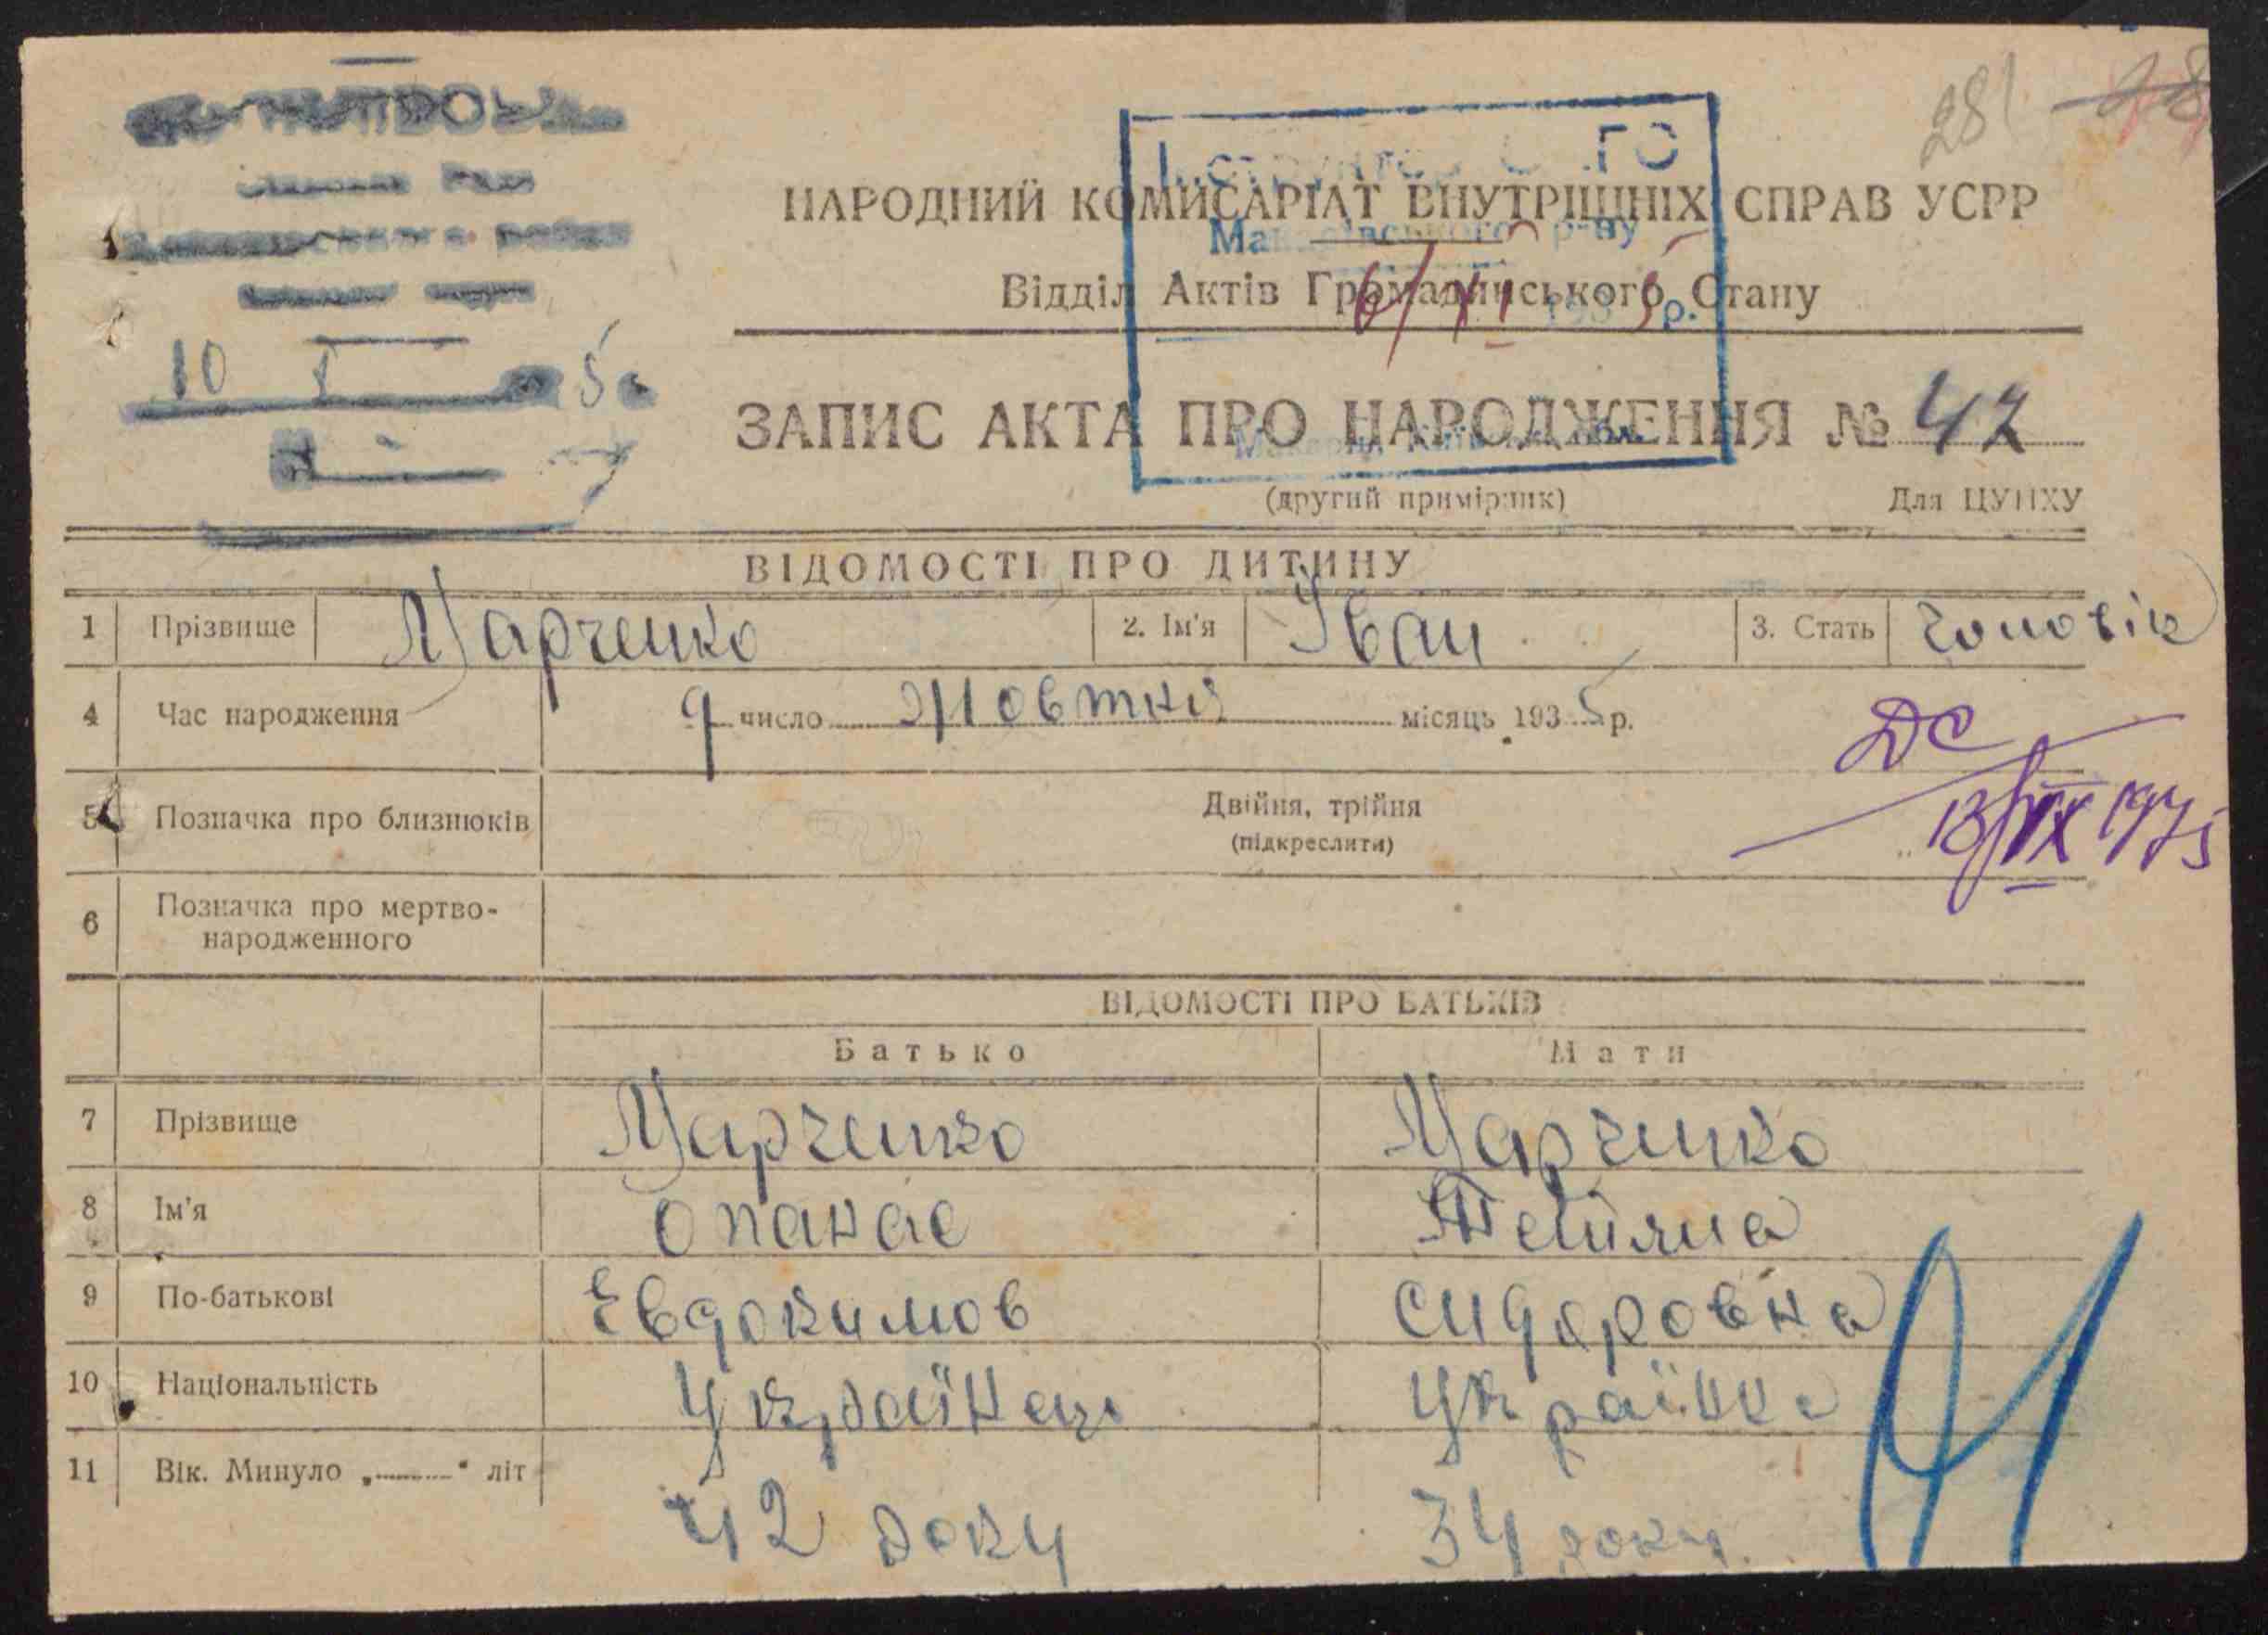 281
НАРОДНИЙ КОМИСАРІАТ ВНУТРІШНІХ СПРАВ УСРР
Відділ Актів Громадянського Стану
6/XI 1935 р.
10 I 5
ЗАПИС АКТА ПРО НАРОДЖЕННЯ № 47
(другий примірник) Для ЦУНХУ
ВІДОМОСТІ ПРО ДИТИНУ
1 Прізвище Марченко 2. Ім'я Іван 3. Стать чоловік
4 Час народження 9 число Жовтня місяць 1935 р.
ДС
13/IX 1975
5 Позначка про близнюків Двійня, трійня
(підкреслити)
6 Позначка про мертво-
народженного
ВІДОМОСТІ ПРО БАТЬКІВ
Батько Мати
7 Прізвище Марченко Марченко
8 Ім'я Опанас Тетяна
9 По-батькові Евдокимов Сидоровна
10 Національність Українець Українка
11 Вік. Минуло „ “ літ 42 року 34 року